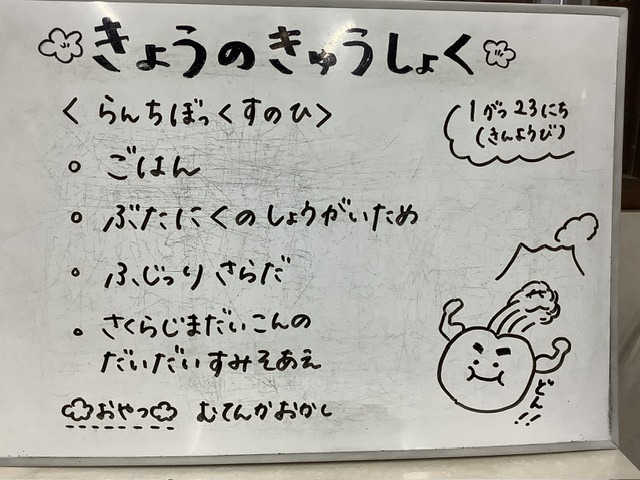 きょうのきゅうしょく
<らんちぼっくすのひ>
1がつ23にち
(きんようび)
○ ごはん
○ ぶたにくのしょうがいため
○ ふ、じっりさらだ
○ さくらじまだいこんの
だいだいすみそあえ
おやつ むてんかおかし
どん!!